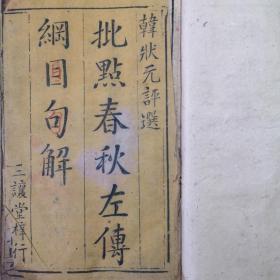 韓狀元評選
批點春秋左傳
綱目句解
三讓堂梓行